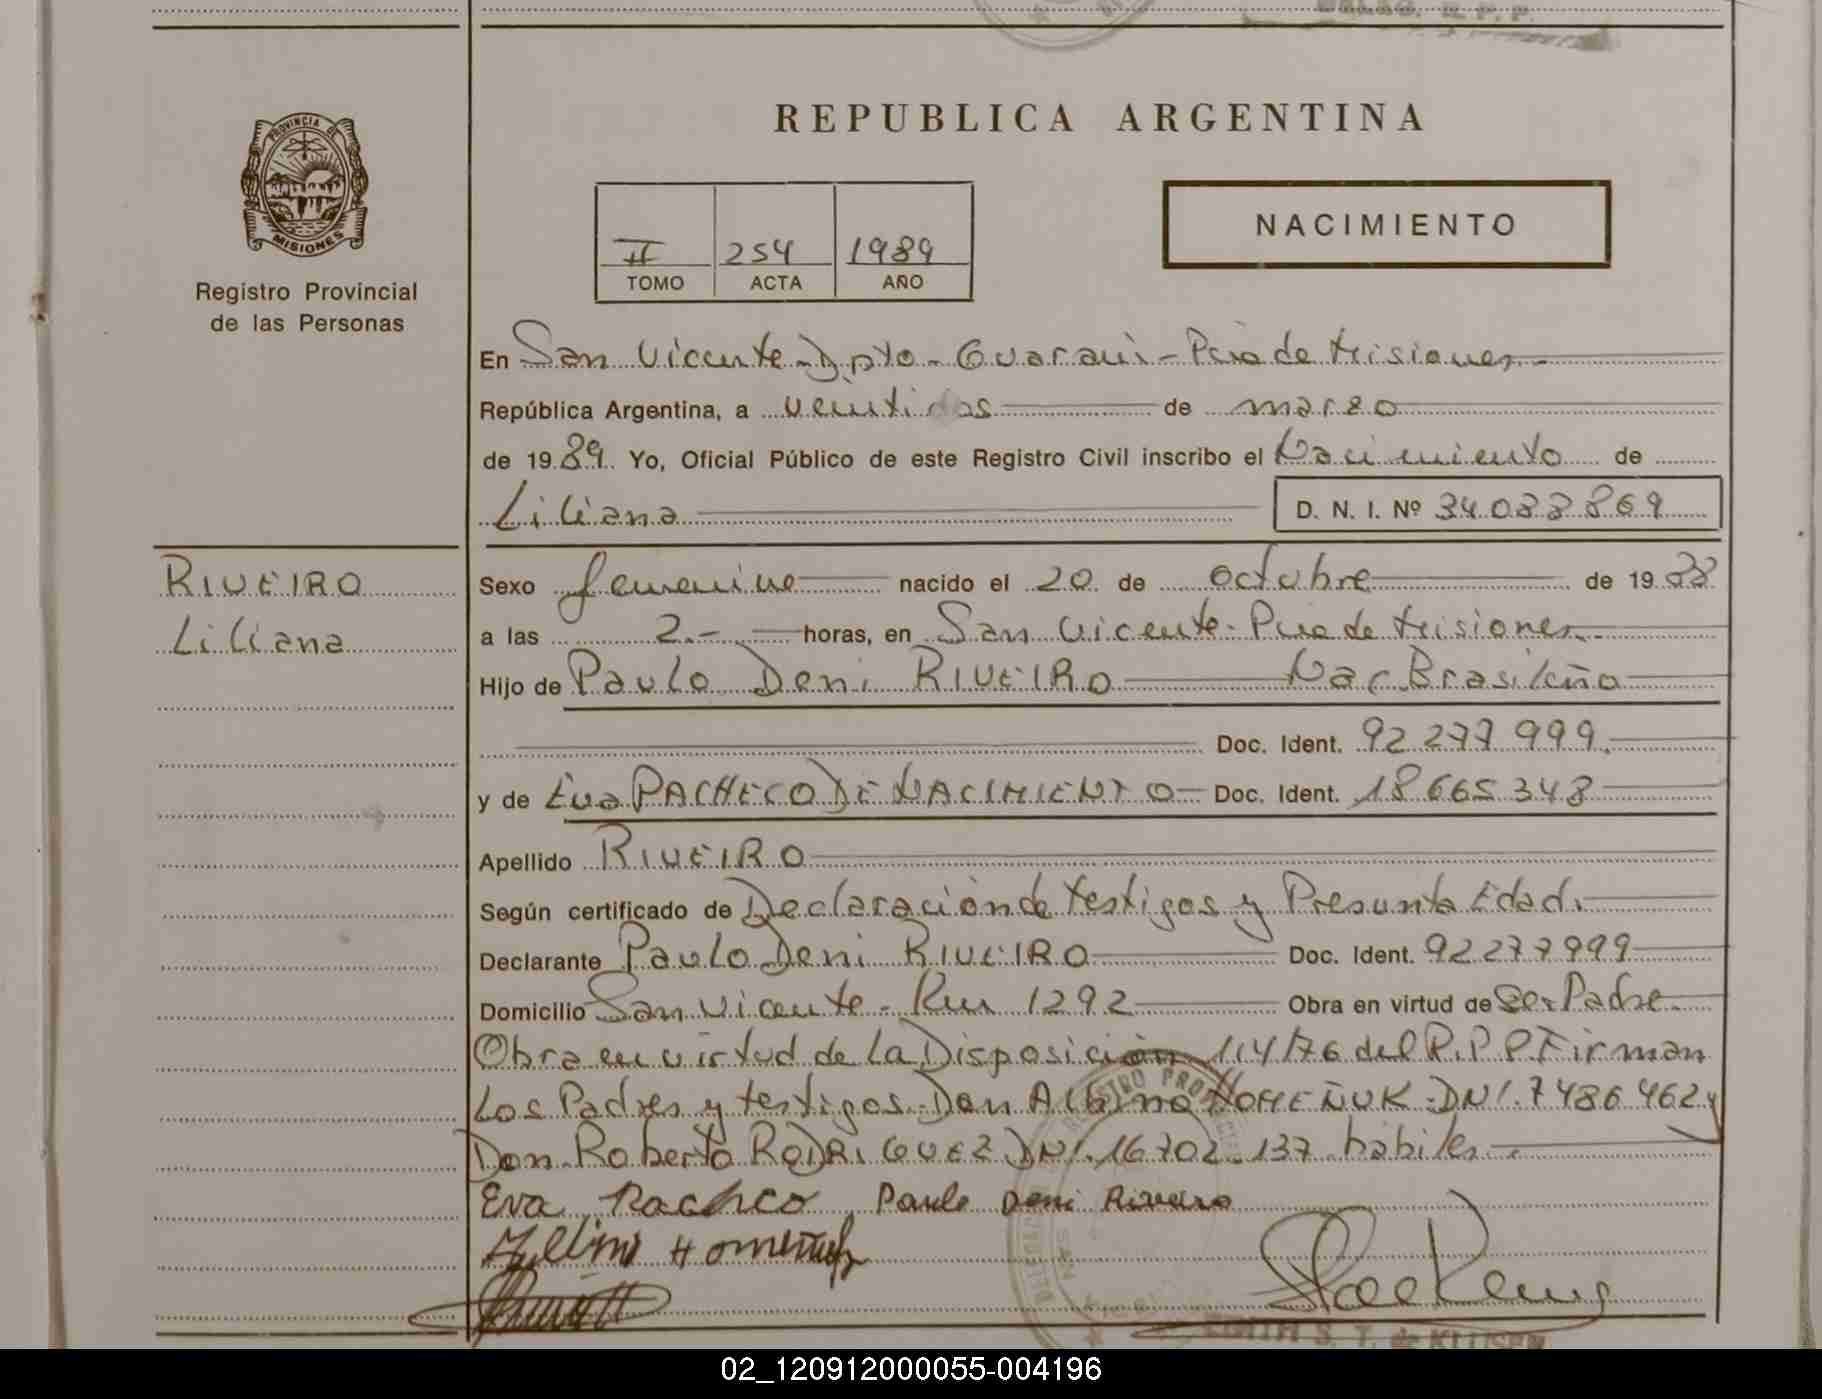 REPUBLICA ARGENTINA
PROVINCIA DE
MISIONES
Registro Provincial
de las Personas
II 254 1989
TOMO ACTA AÑO
NACIMIENTO
En San Vicente-Dpto-Guaraní-Pcia de Misiones
República Argentina, a veintidos de marzo
de 1989. Yo, Oficial Público de este Registro Civil inscribo el Nacimiento de
Liliana D. N. I. Nº 34.088.869
RIVEIRO
Liliana
Sexo femenino nacido el 20 de octubre de 1988
a las 2.- horas, en San Vicente-Pcia de Misiones.
Hijo de Paulo Deni RIVEIRO Nac Brasileño
Doc. Ident. 92.277.999.
y de Eva PACHECO DE NACIMIENTO Doc. Ident. 18.665.348
Apellido RIVEIRO
Según certificado de Declaración de testigos y Presunta Edad.
Declarante Paulo Deni RIVEIRO Doc. Ident. 92.277.999
Domicilio San Vicente- Km 1292 Obra en virtud de Ser Padre
Obra en virtud de La Disposición 114/76 del R.P.P. Firman
Los Padres y testigos. Don Albino HOMEÑUK-DNI.7486.462 y
Don Roberto RODRIGUEZ DNI.16.702.137 hábiles
Eva Pacheco Paulo Deni Riveiro
Homeñuk
EDITH S. T. de KLUSEN
02_120912000055-004196